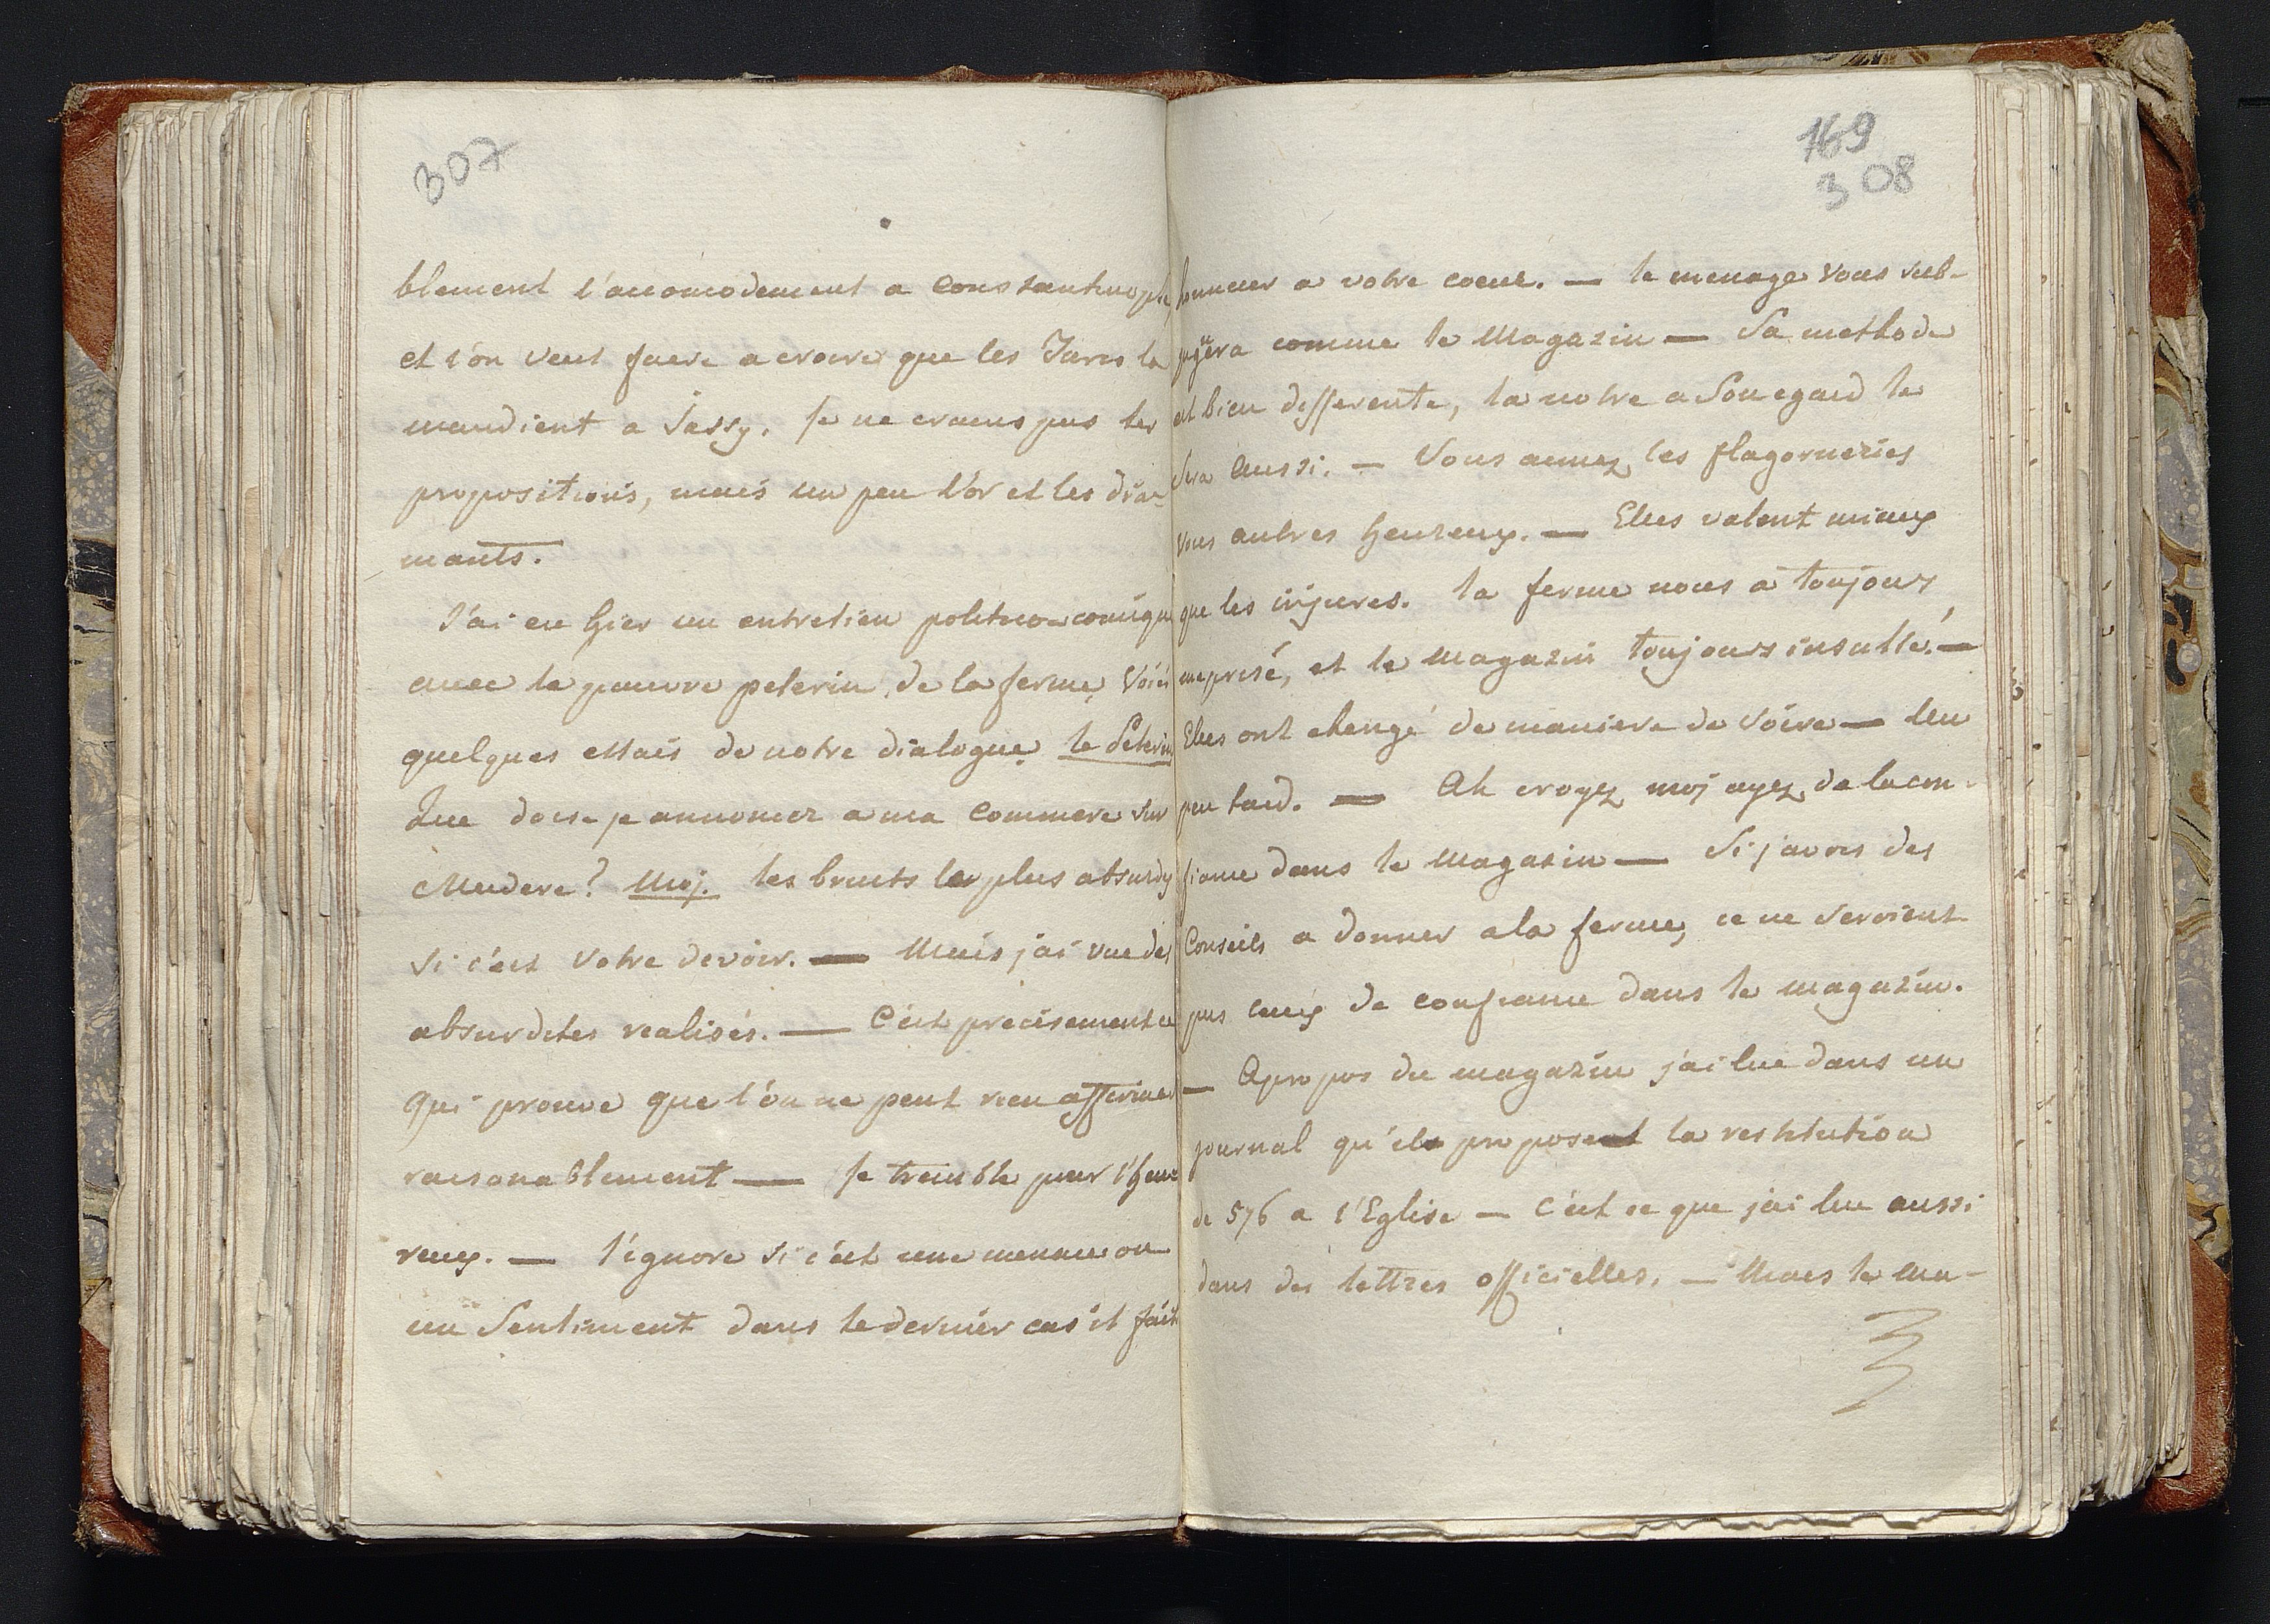 307
blement l'accomodement a Constantinople,
et l'on veut faire a croire que les Turcs la
mandient a Jassy. Je ne crains pas les
propositions, mais un peu l'or et les dia-
mants.
J'ai eu hier un entretien politico-comique
avec le pauvre pelerin de la ferme, Voici
quelques essais de notre dialogue. le Pelerin
Que dois-je annoncer a ma Commere sur
Madere? Moj. les bruits les plus absurdes
si c'est votre devoir. — Mais j'ai vue des
absurdites realisés. — C'est precisement ce
qui prouve que l'on ne peut rien affirmer
raisonablement — Je tremble pour l'heu
reux. — J'ignore si c'est une menace ou
un Sentiment dans le dernier cas il fait
169
308
honneur a votre coeur. — le menage vous sub-
jugera comme le Magazin — Sa methode
est bien differente, la notre a Son egard le
Sera aussi. — Vous aimez les flagorneries
vous autres heureux. — Elles valent mieux
que les injures. la ferme nous a toujours
meprisé, et le magazin toujours insulté. —
Elles ont changé de maniere de voire — Un
peu tard. — Ah croyez moj ayez de la con-
fiance dans le Magazin — Si j'avois des
Conseils a donner a la ferme, ce ne seroient
pas ceux de confiance dans le magazin.
— Apropos du magazin j'ai lue dans un
journal qu'il propose la restitution
de 576 a l'Eglise — C'est ce que j'ai lue aussi
dans des lettres officielles. — Mais le ma-